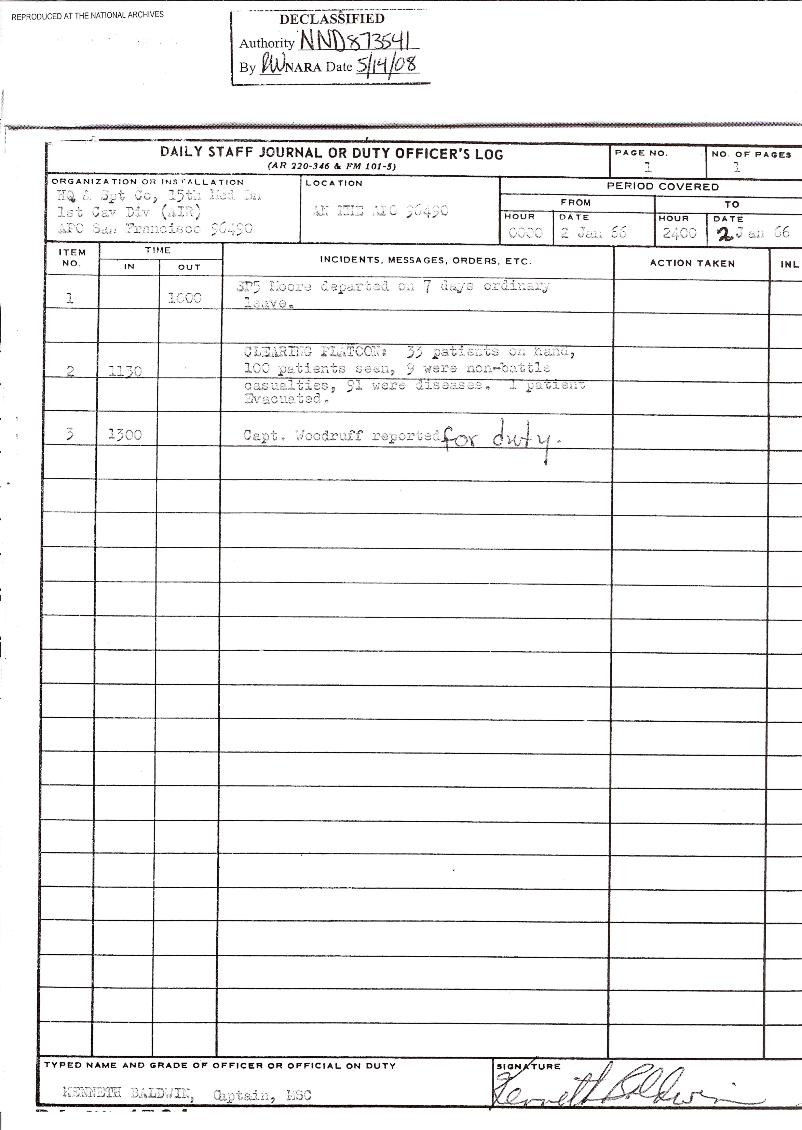 REPRODUCED AT THE NATIONAL ARCHIVES
DECLASSIFIED
Authority NND873541
By RW NARA Date 5/14/08
DAILY STAFF JOURNAL OR DUTY OFFICER'S LOG
(AR 220-346 & FM 101-5)
PAGE NO.
1
NO. OF PAGES
1
ORGANIZATION OR INSTALLATION
HQ & Spt Co, 15th Med Bn
1st Cav Div (AIR)
APO San Francisco 96490
LOCATION
AN KHE APO 96490
PERIOD COVERED
FROM
TO
HOUR
DATE
HOUR
DATE
0000
2 Jan 66
2400
2 Jan 66
ITEM NO.
TIME
IN
OUT
INCIDENTS, MESSAGES, ORDERS, ETC.
ACTION TAKEN
INL
1 1000 SP5 Moore departed on 7 days ordinary
leave.
CLEARING PLATOON: 33 patients on hand,
2 1130 100 patients seen, 9 were non-battle
casualties, 91 were diseases. 1 patient
Evacuated.
3 1300 Capt. Woodruff reported for duty.
TYPED NAME AND GRADE OF OFFICER OR OFFICIAL ON DUTY
KENNETH BALDWIN, Captain, MSC
SIGNATURE
Kenneth Baldwin